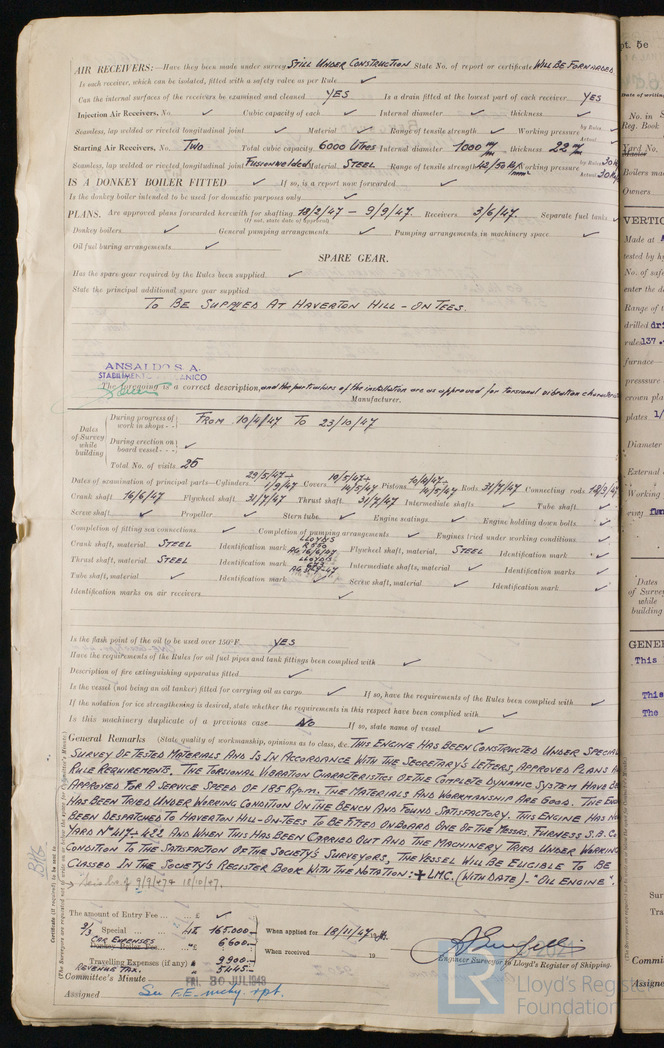 AIR RECEIVERS:—Have they been made under survey STILL UNDER CONSTRUCTION State No. of report or certificate WILL BE FORWARDED
Is each receiver, which can be isolated, fitted with a safety valve as per Rule ✓
Can the internal surfaces of the receivers be examined and cleaned YES Is a drain fitted at the lowest part of each receiver YES
Injection Air Receivers, No. ✓ Cubic capacity of each ✓ Internal diameter ✓ thickness ✓
Seamless, lap welded or riveted longitudinal joint ✓ Material ✓ Range of tensile strength ✓ Working pressure by Rules Actual
Starting Air Receivers, No. TWO Total cubic capacity 6000 LITRES Internal diameter 1000 m/m thickness 22 m/m
Seamless, lap welded or riveted longitudinal joint FUSION WELDED Material STEEL Range of tensile strength Working pressure by Rules Actual
IS A DONKEY BOILER FITTED ✓ If so, is a report now forwarded ✓
Is the donkey boiler intended to be used for domestic purposes only ✓
PLANS. Are approved plans forwarded herewith for shafting 18/2/47 – 9/9/47. Receivers 3/6/47. Separate fuel tanks ✓
(If not, state date of approval)
Donkey boilers ✓ General pumping arrangements ✓ Pumping arrangements in machinery space ✓
Oil fuel buring arrangements ✓
SPARE GEAR.
Has the spare gear required by the Rules been supplied ✓
State the principal additional spare gear supplied
TO BE SUPPLIED AT HAVERTON HILL – ON TEES.
ANSALDO S. A.
The foregoing is a correct description, and the particulars of the installation are as approved for torsional vibration characteristics
Manufacturer.
Dates of Survey while building
During progress of work in shops - - FROM 10/4/47 TO 23/10/47
During erection on board vessel - - ✓
Total No. of visits 25
Dates of examination of principal parts—Cylinders 29/5/47 1/9/47 Covers Pistons Rods 31/7/47 Connecting rods
Crank shaft 16/6/47 Flywheel shaft 31/7/47 Thrust shaft 31/7/47 Intermediate shafts ✓ Tube shaft ✓
Screw shaft ✓ Propeller ✓ Stern tube ✓ Engine seatings ✓ Engine holding down bolts ✓
Completion of fitting sea connections ✓ Completion of pumping arrangements ✓ Engines tried under working conditions ✓
Crank shaft, material STEEL Identification mark LLOYD'S AG 16/6/47 Flywheel shaft, material STEEL Identification mark ✓
Thrust shaft, material STEEL Identification mark LLOYD'S Intermediate shafts, material ✓ Identification marks ✓
Tube shaft, material ✓ Identification mark ✓ Screw shaft, material ✓ Identification mark ✓
Identification marks on air receivers ✓
Is the flash point of the oil to be used over 150°F. YES
Have the requirements of the Rules for oil fuel pipes and tank fittings been complied with ✓
Description of fire extinguishing apparatus fitted ✓
Is the vessel (not being an oil tanker) fitted for carrying oil as cargo ✓ If so, have the requirements of the Rules been complied with ✓
If the notation for ice strengthening is desired, state whether the requirements in this respect have been complied with ✓
Is this machinery duplicate of a previous case NO If so, state name of vessel ✓
General Remarks (State quality of workmanship, opinions as to class, &c. THIS ENGINE HAS BEEN CONSTRUCTED UNDER SPECIAL
SURVEY OF TESTED MATERIALS AND IS IN ACCORDANCE WITH THE SECRETARY'S LETTERS, APPROVED PLANS
RULE REQUIREMENTS. THE TORSIONAL VIBRATION CHARACTERISTICS OF THE COMPLETE DYNAMIC SYSTEM HAVE
APPROVED FOR A SERVICE SPEED OF 185 R.p.m. THE MATERIALS AND WORKMANSHIP ARE GOOD. THE
HAS BEEN TRIED UNDER WORKING CONDITION ON THE BENCH AND FOUND SATISFACTORY. THIS ENGINE HAS
BEEN DESPATCHED TO HAVERTON HILL-ON-TEES TO BE FITTED ONBOARD ONE OF THE MESSRS. FURNESS S.B. Co
YARD Nº 417-432 AND WHEN THIS HAS BEEN CARRIED OUT AND THE MACHINERY TRIED UNDER WORKING
CONDITION TO THE SATISFACTION OF THE SOCIETY'S SURVEYORS, THE VESSEL WILL BE ELIGIBLE TO BE
CLASSED IN THE SOCIETY'S REGISTER BOOK WITH THE NOTATION: + LMC. (WITH DATE) – "OIL ENGINE".
9/9/47 & 18/10/47.
The amount of Entry Fee ... £ ✓
2/3 Special ... 165.000 When applied for 18/11/47
CAR EXPENSES 6600 When received 19
Travelling Expenses (if any) 9900
REVENUE TAX. 5445
Engineer Surveyor to Lloyd's Register of Shipping.
Committee's Minute FRI. 30 JUL 1948
Assigned See F.E. mchy. rpt.
© 2021
LR Lloyd's Register Foundation